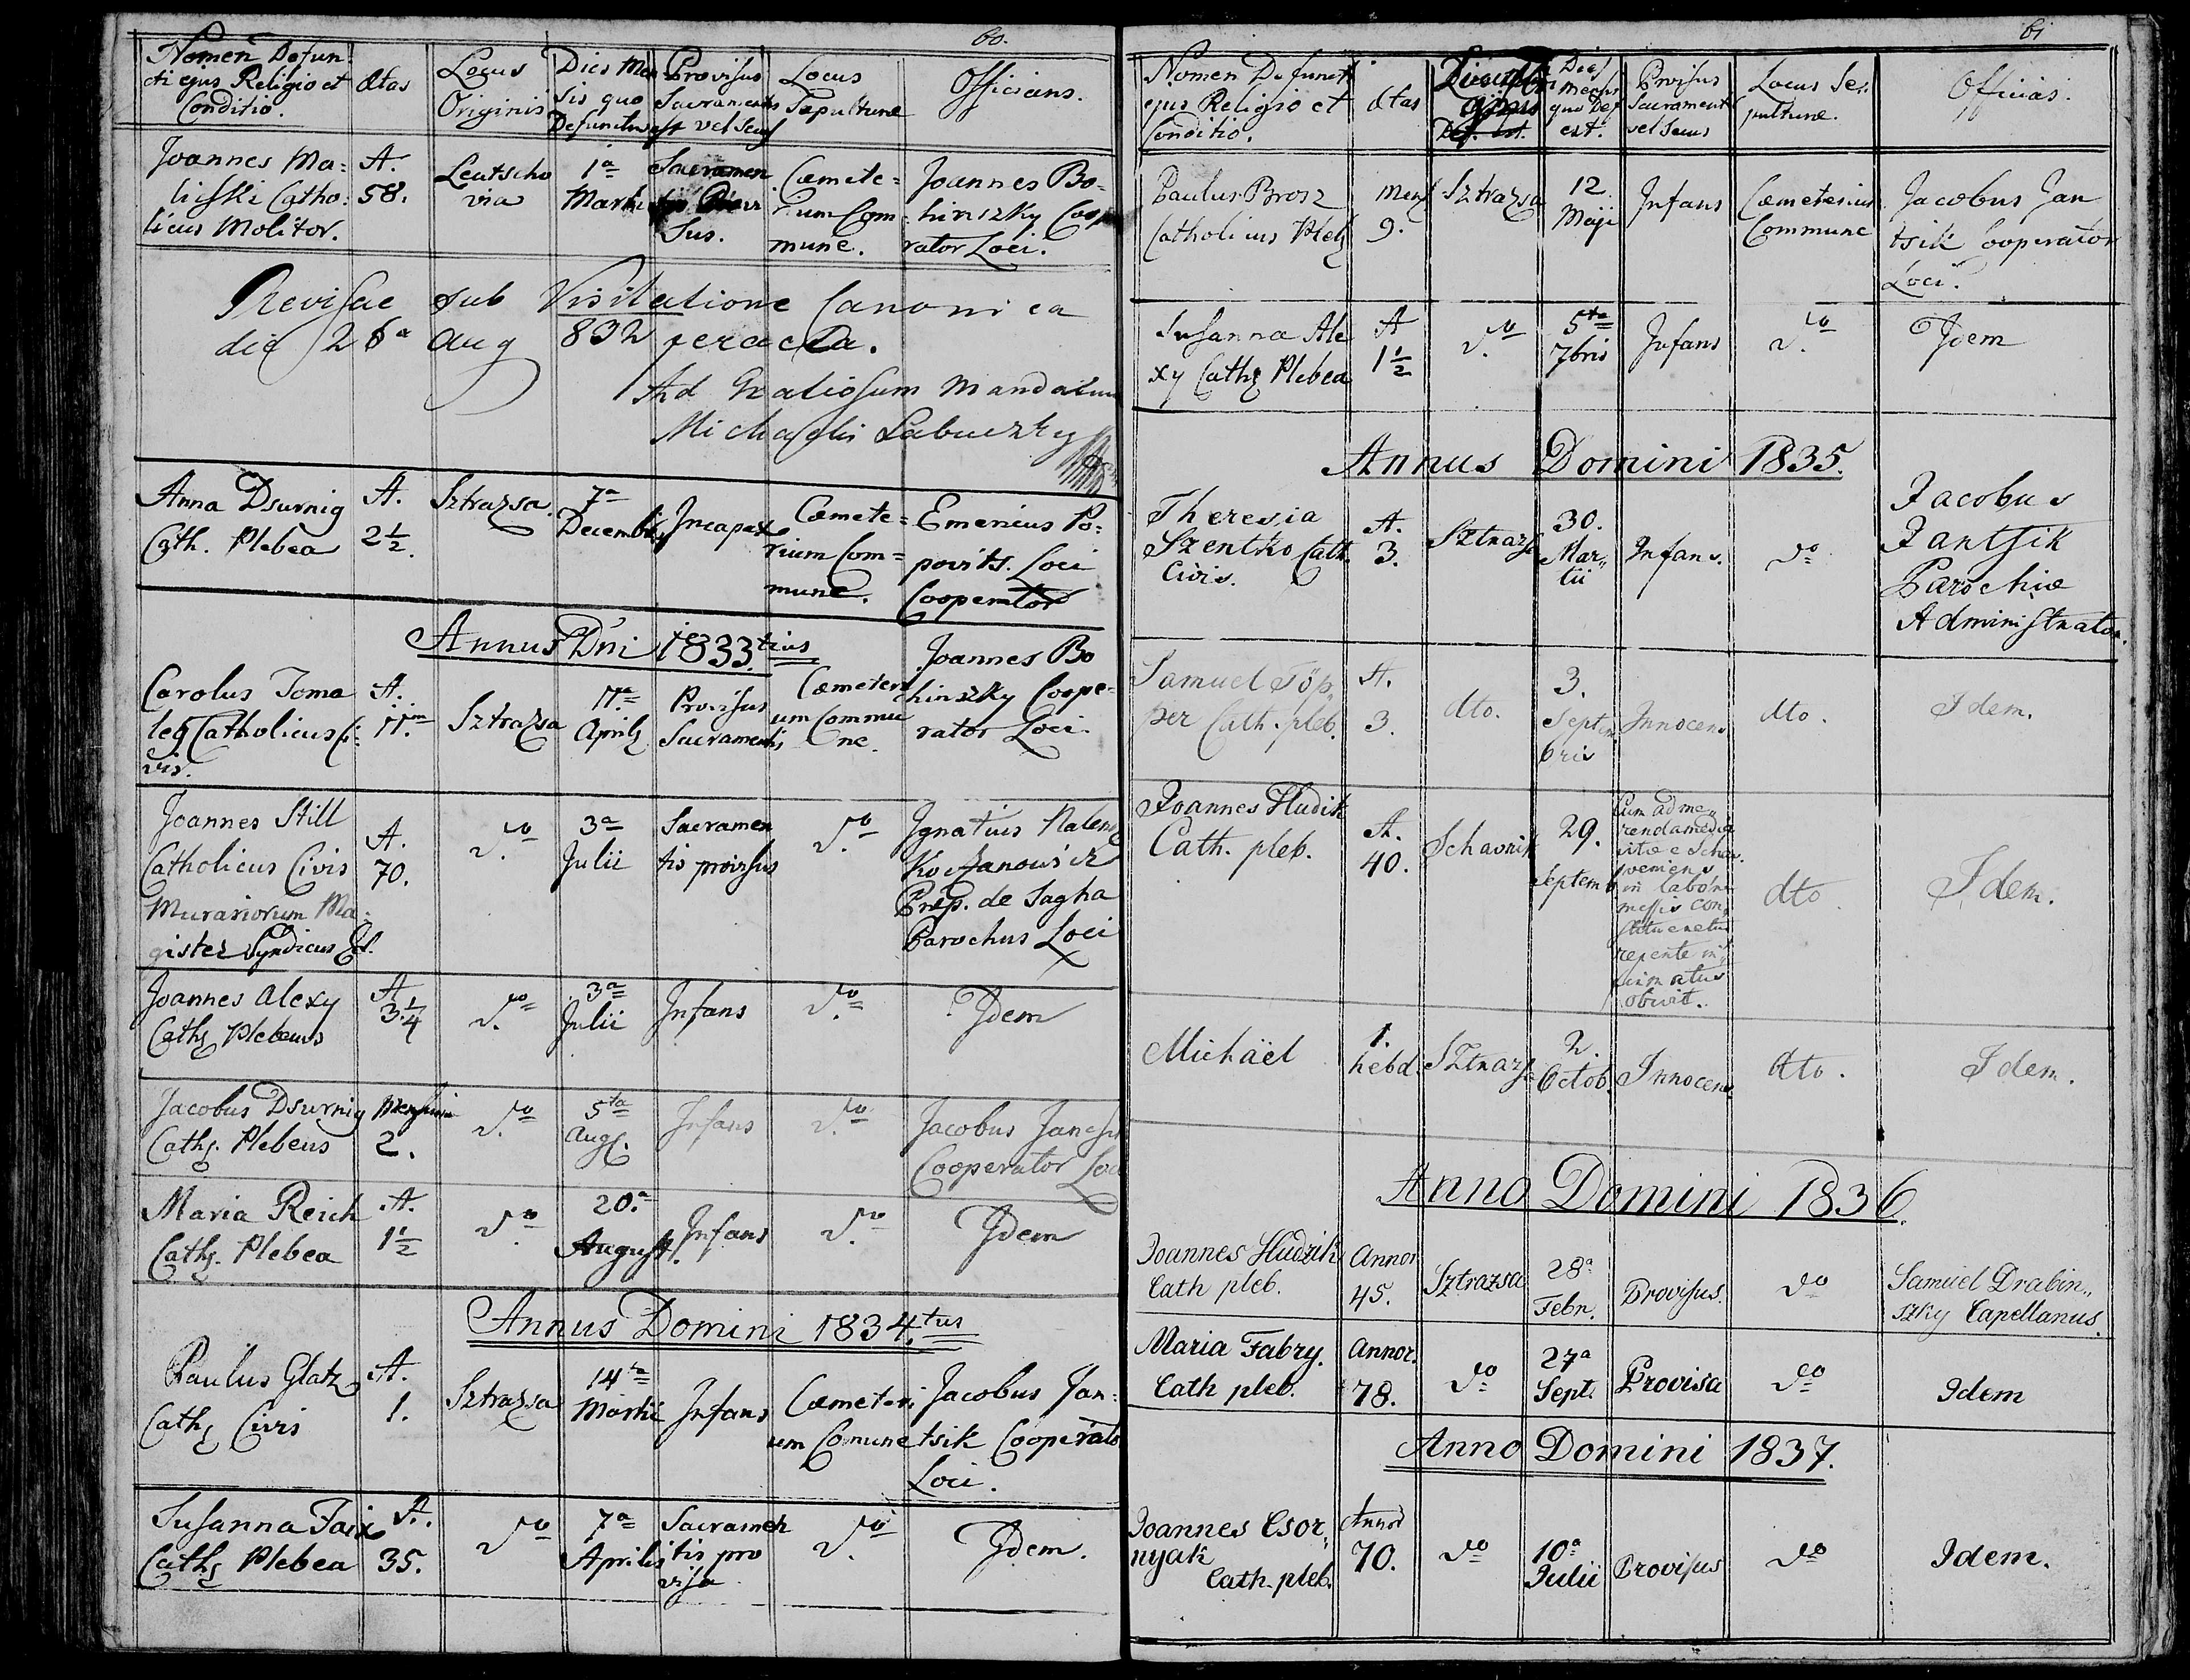 60.
Nomen Defun-
cti ejus Religio et
Conditio.
Ætas
Locus
Originis
Dies Men
sis quo
Defunctus est
Provisus
Sacramentis
vel Secus
Locus
Sepulturæ
Officians.
Joannes Ma:
liski Catho:
licus Molitor.
A.
58.
Leutscho
via
1a
Martii
Sacramen
sus.
Cœmete=
rium Com=
mune.
Joannes Bo-
hinszky Coope
rator Loci.
Revisae sub Visitatione Canonica
die 26a Aug 832 peracta.
Ad Gratiosum Mandatum
Michaelis Labuczky
Anna Dsurnig
Cath. Plebea
A.
2½.
Sztrazsa.
7a
Decembris
Incapax
Cœmete=
rium Com=
mune.
Emericus Po:
povits. Loci
Cooperator
Annus Dni 1833.tius
Carolus Toma
les Catholicus Ci:
vis.
A.
11.m
Sztrazsa
17.a
Aprilis
Provisus
Sacramentis
Cœmeteri
um Commu
ne.
Joannes Bo
hinszky Coope-
rator Loci.
Joannes Still
Catholicus Civis
Murariorum Ma:
gister Syndicus
A.
70.
do
3a
Julii
Sacramen
tis provisus
do
Ignatius
Præp. de Sagha
Parochus Loci
Joannes Alexy
Cath. Plebeus
A
3¼
do
3a
Julii
Infans
do
Idem
Jacobus Dsurnig
Cath. Plebeus
Mensium
2.
do
5ta
Aug.
Infans
do
Jacobus Jancsik
Cooperator Loci
Maria Reich
Cath. Plebea
A.
1½
do
20.a
August.
Infans
do
Idem
Annus Domini 1834.tus
Paulus Glatz
Cath. Civis
A.
1.
Sztrazsa
14ta
Martii
Infans
Cœmeteri
um Comune
Jacobus Jan:
tsik Cooperato
Loci.
Susanna Faix
Cath. Plebea
A.
35.
do
7a
Aprilis
Sacramen
tis pro
visa
do
Idem.
61
Nomen Defuncti
ejus Religio et
Conditio.
Ætas
Def. est.
Dies
Mensis
quo Def
est.
Provisus
Sacrament
vel Secus
Locus Se-
pulturæ.
Officias.
Paulus Brosz
Catholicus Pleb.
Mens
9.
Sztrazsa
12.
Maji
Infans
Cœmeterium
Commune
Jacobus Jan
tsik Cooperator
Loci.
Susanna Ale
xy Cath. Plebea
A
1½
do
5ta
7bris
Infans
do
Idem
Annus Domini 1835.
Theresia
Szentko Cath.
Civis.
A.
3.
Sztrazs
30.
Mar„
tii
Infans.
do
Jacobus
Jantsik
Parochiæ
Administrator.
Samuel Töp„
per Cath. pleb.
A.
3.
dto.
3.
Septem
bris
Innocens
dto.
Idem.
Joannes Hudik
Cath. pleb.
A.
40.
Schavnik
29.
Septemb
Cum ad me„
renda media
vitæ e Schav.
veniens
in labore
messis con„
stitueretur
repente in„
firmatus
obivit.
dto
Idem.
Michaël
1.
hebd.
Sztrazs
2.
Octob.
Innocens
dto.
Idem.
Anno Domini 1836.
Joannes Hudzik
Cath pleb.
Annor
45.
Sztrazsa
28a
Febr.
Provisus.
do
Samuel Drabin„
szky Capellanus.
Maria Fabry.
Cath pleb.
Annor.
78.
do
27a
Sept.
Provisa
do
Idem
Anno Domini 1837.
Joannes Csor„
nyak
Cath. pleb.
Annor
70.
do
10a
Julii
Provisus
do
Idem.